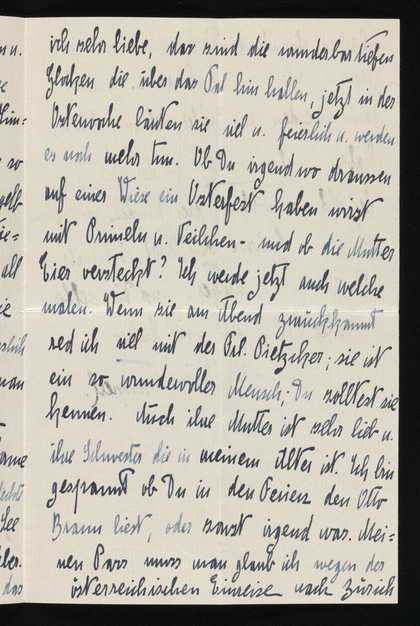 ich sehr liebe, das sind die wunderbar tiefen
Glocken die über das Tal hin hallen, jetzt in der
Osterwoche läuten sie viel u. feierlich u. werden
es noch mehr tun. Ob Du irgendwo draussen
auf einer Wiese ein Osterfest haben wirst
mit Primeln u. Veilchen - und ob die Mutter
Eier versteckt? Ich werde jetzt auch welche
malen. Wenn sie am Abend zurückkommt
red ich viel mit der Frl. Pietzcker; sie ist
ein so wundervoller Mensch, Du solltest sie
kennen. Auch ihre Mutter ist sehr lieb u.
ihre Schwester die in meinem Alter ist. Ich bin
gespannt ob Du in den Ferien den Otto
Braun liest, oder sonst irgend was. Mei-
nen Pass muss man glaub ich wegen der
österreichischen Einreise nach Zürich